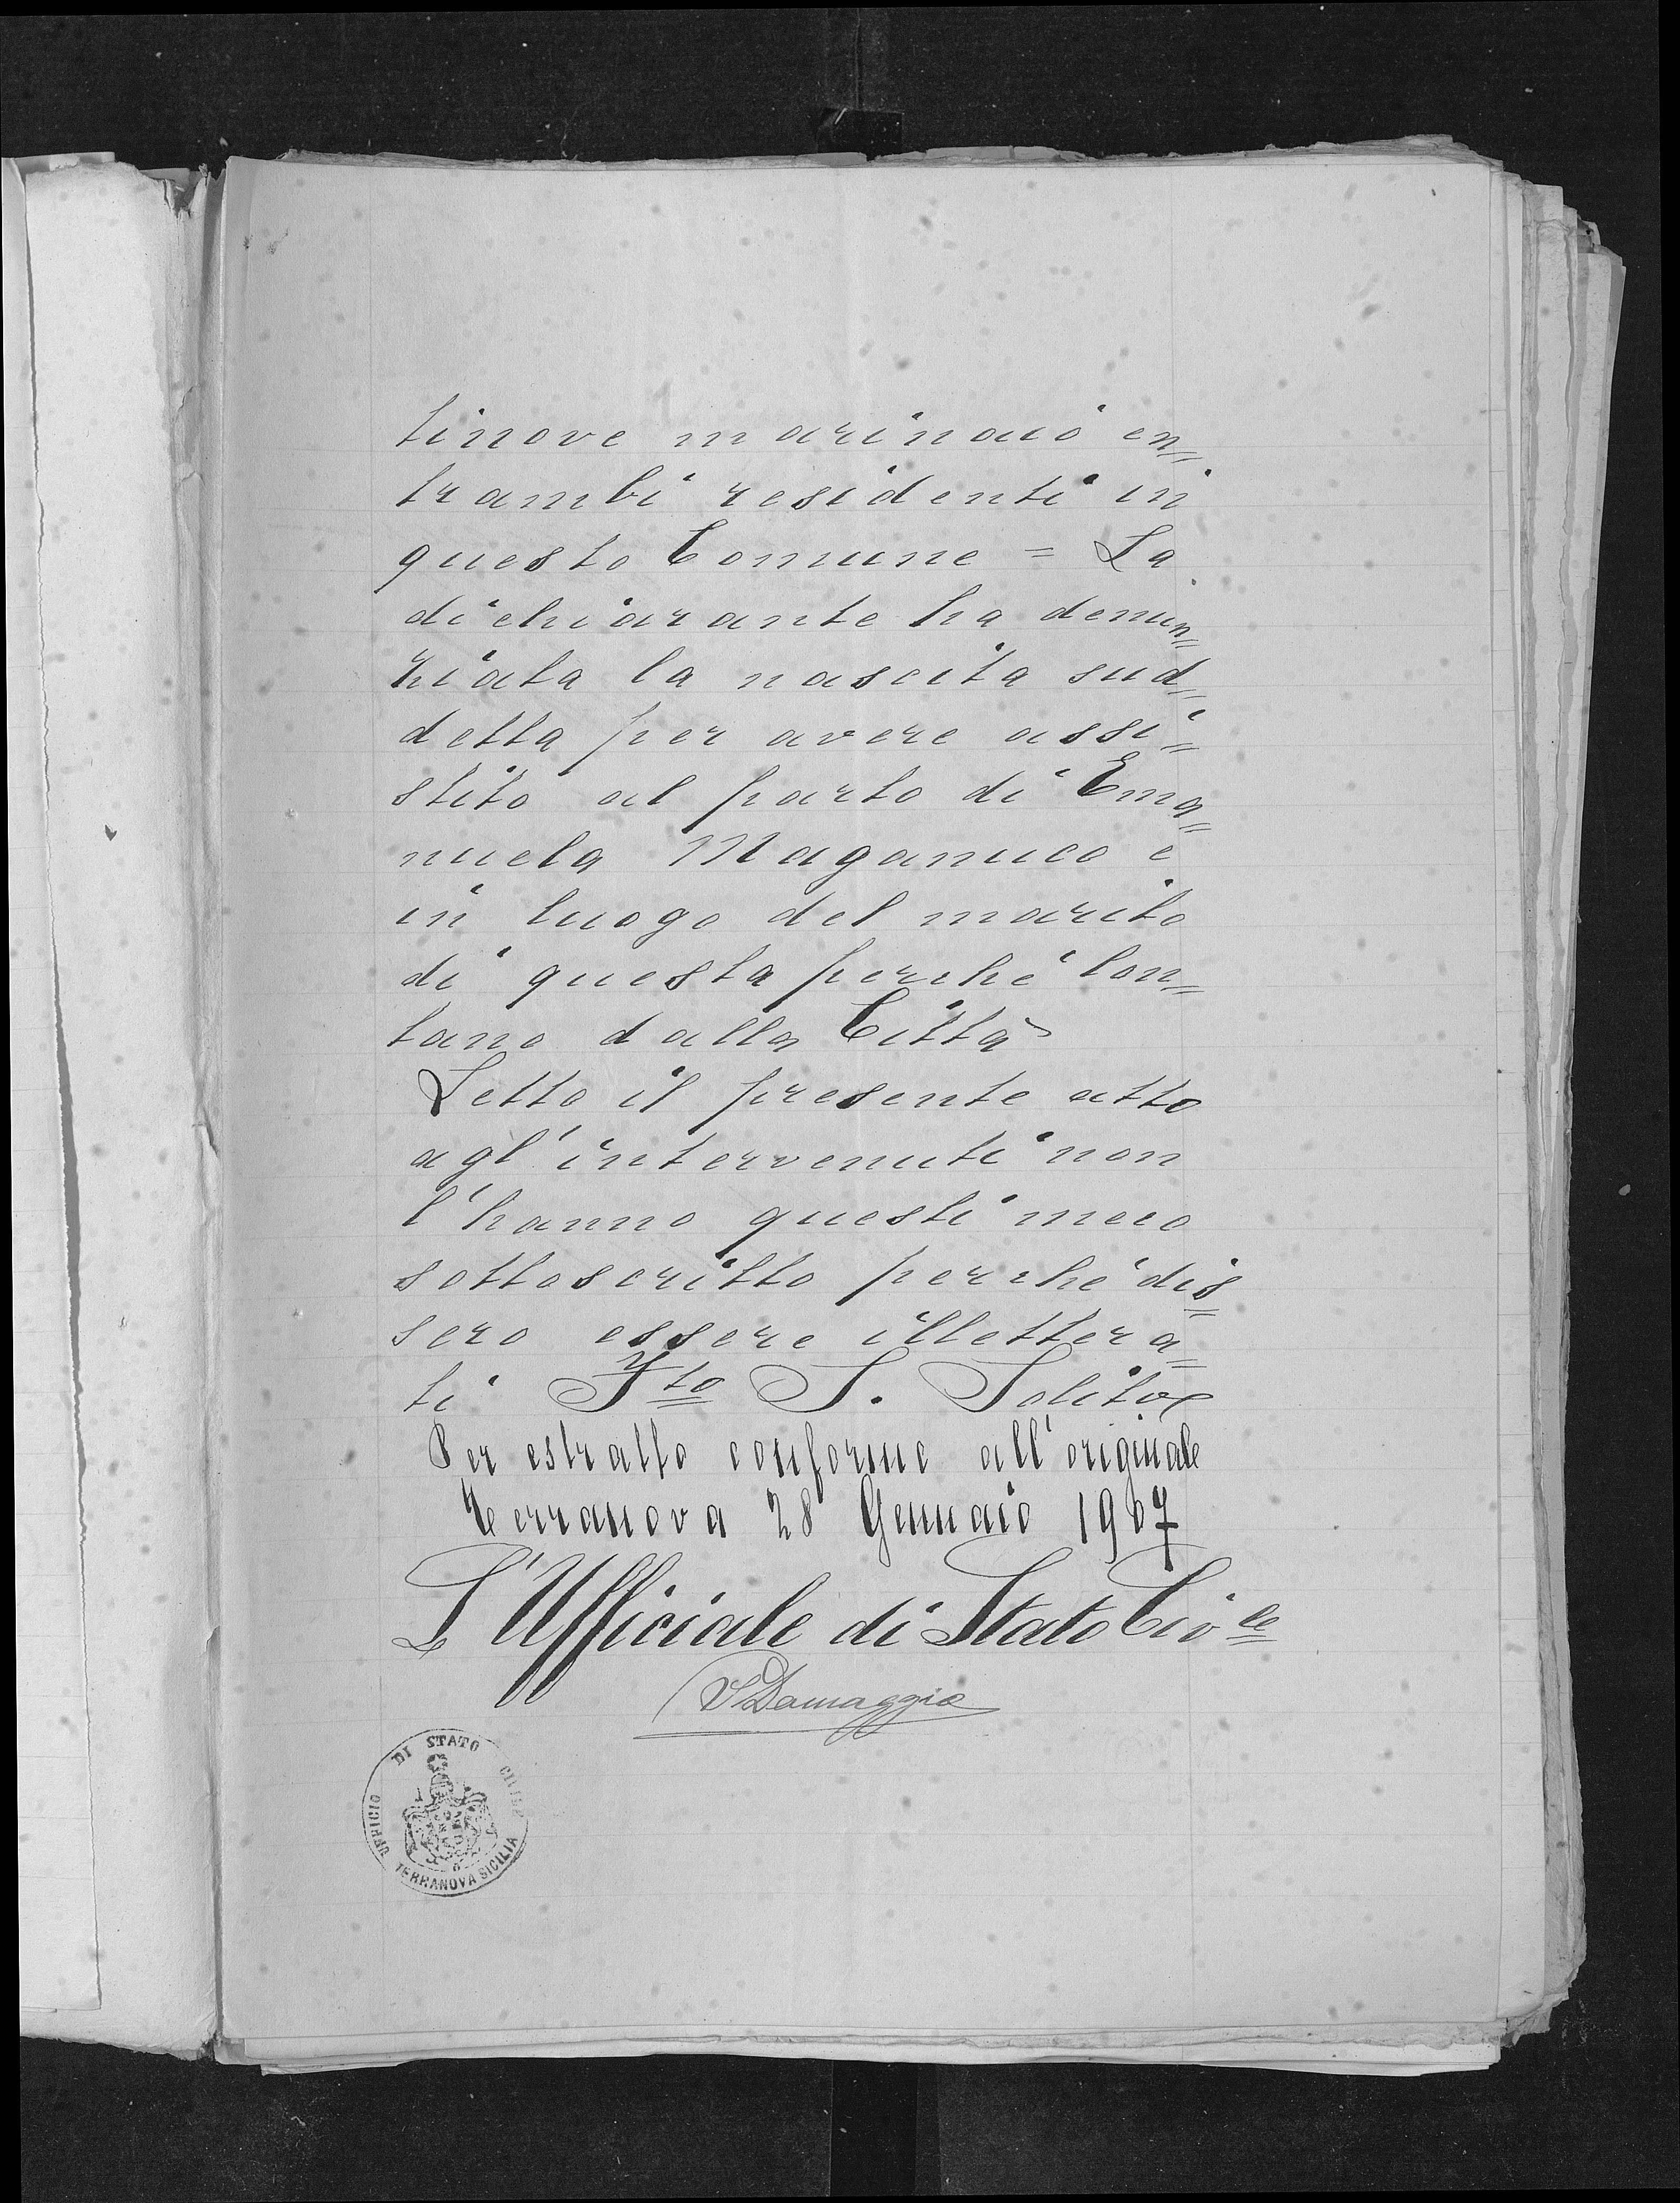 tinove marinaio en=
trambi residenti in
questo Comune = La
dichiarante ha denun=
ziata la nascita sud=
detta per avere assi=
stito al parto di Ema=
nuela Maganuco e
in luogo del marito
di questa perché lon=
tano dalla Città
Letto il presente atto
agl'intervenuti non
l'hanno questi meco
sottoscritto perché dis=
sero essere illettera=
ti Fto S. Solito
Per estratto conforme all'originale
Terranova 28 Gennaio 1907
L'Ufficiale di Stato Civle
S Damaggio
UFFICIO DI STATO CIVILE
TERRANOVA SICILIA